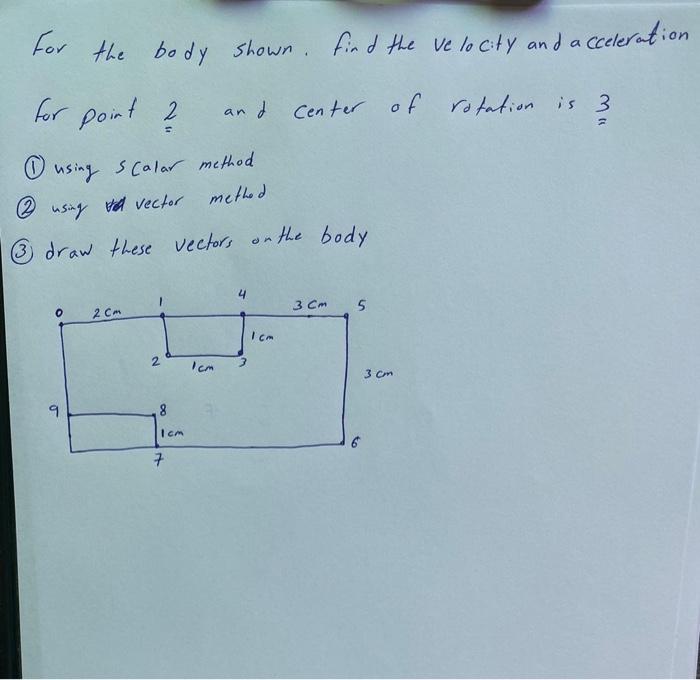 For the body shown. find the velocity and acceleration
for point 2 and center of rotation is 3
① using scalar method
② using vector method
③ draw these vectors on the body
0 2 cm 1 4 3 cm 5
1 cm
2 1 cm 3
3 cm
9 8
1 cm
7 6